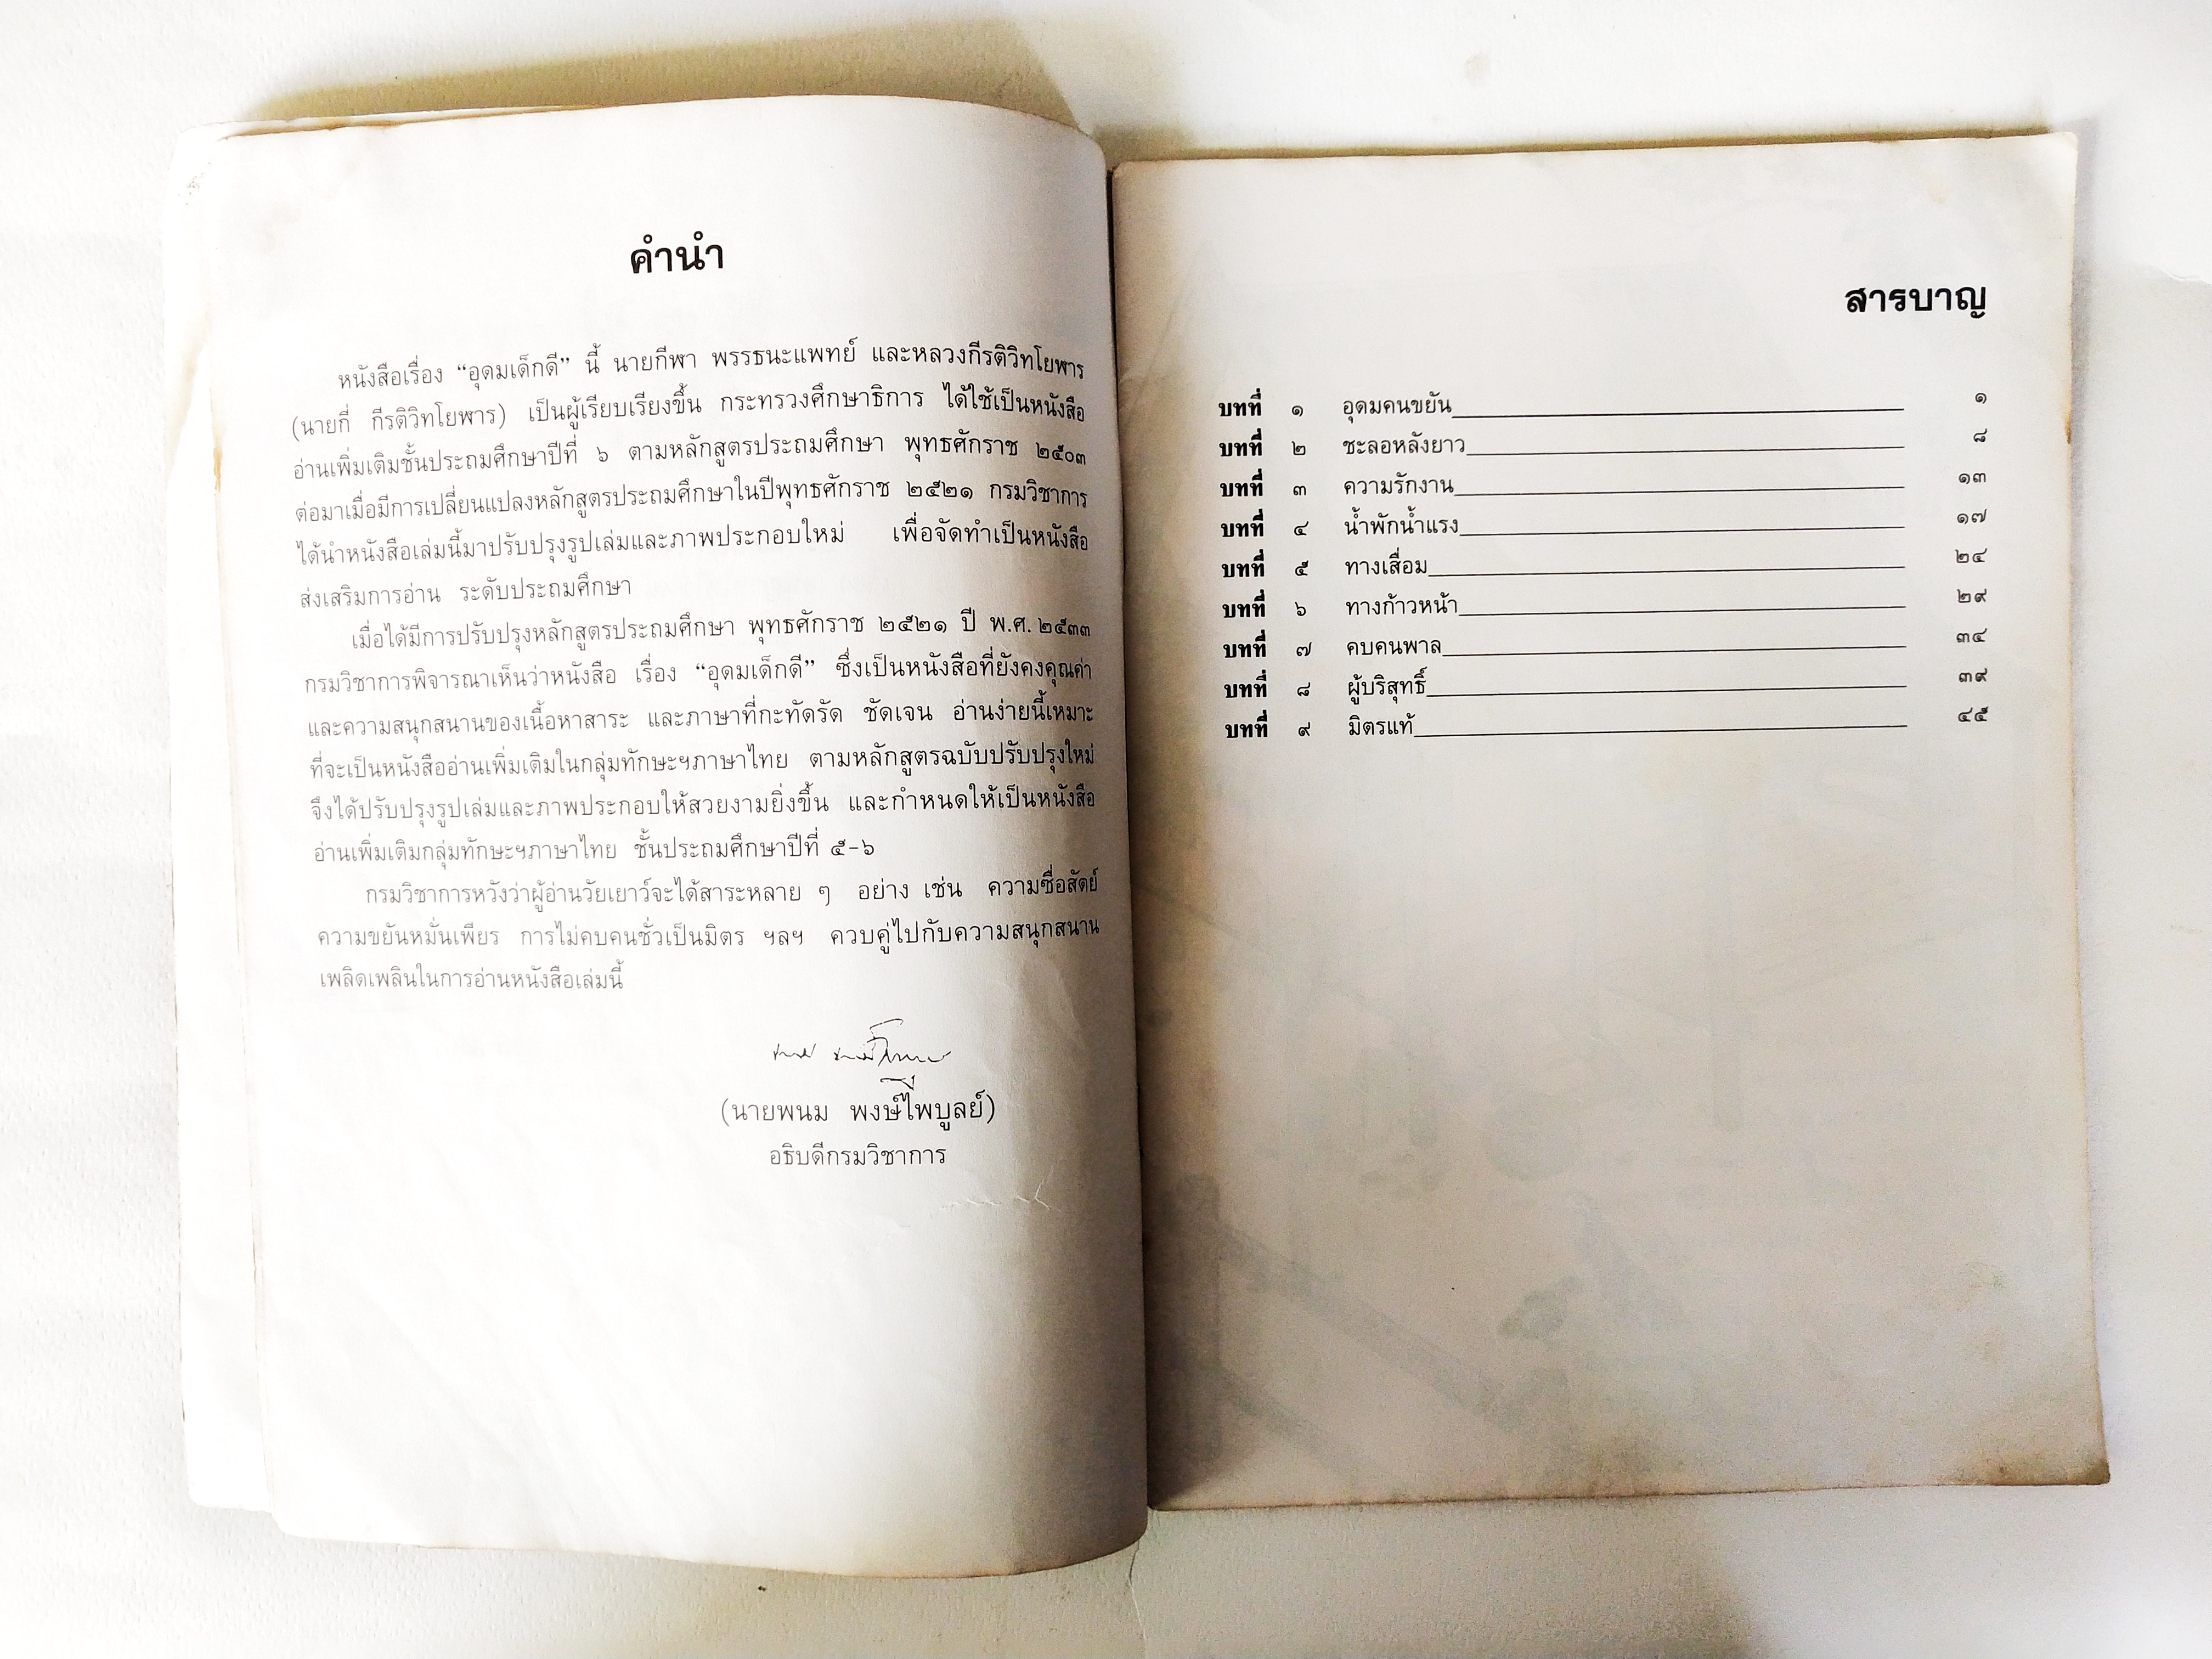 คำนำ
หนังสือเรื่อง “อุดมเด็กดี” นี้ นายกีฬา พรรธนะแพทย์ และหลวงกีรติวิทโยฬาร
(นายกี่ กีรติวิทโยฬาร) เป็นผู้เรียบเรียงขึ้น กระทรวงศึกษาธิการ ได้ใช้เป็นหนังสือ
อ่านเพิ่มเติมชั้นประถมศึกษาปีที่ ๖ ตามหลักสูตรประถมศึกษา พุทธศักราช ๒๕๐๓
ต่อมาเมื่อมีการเปลี่ยนแปลงหลักสูตรประถมศึกษาในปีพุทธศักราช ๒๕๒๑ กรมวิชาการ
ได้นำหนังสือเล่มนี้มาปรับปรุงรูปเล่มและภาพประกอบใหม่ เพื่อจัดทำเป็นหนังสือ
ส่งเสริมการอ่าน ระดับประถมศึกษา
เมื่อได้มีการปรับปรุงหลักสูตรประถมศึกษา พุทธศักราช ๒๕๒๑ ปี พ.ศ. ๒๕๓๓
กรมวิชาการพิจารณาเห็นว่าหนังสือ เรื่อง “อุดมเด็กดี” ซึ่งเป็นหนังสือที่ยังคงคุณค่า
และความสนุกสนานของเนื้อหาสาระ และภาษาที่กะทัดรัด ชัดเจน อ่านง่ายนี้เหมาะ
ที่จะเป็นหนังสืออ่านเพิ่มเติมในกลุ่มทักษะฯภาษาไทย ตามหลักสูตรฉบับปรับปรุงใหม่
จึงได้ปรับปรุงรูปเล่มและภาพประกอบให้สวยงามยิ่งขึ้น และกำหนดให้เป็นหนังสือ
อ่านเพิ่มเติมกลุ่มทักษะฯภาษาไทย ชั้นประถมศึกษาปีที่ ๕-๖
กรมวิชาการหวังว่าผู้อ่านวัยเยาว์จะได้สาระหลาย ๆ อย่าง เช่น ความซื่อสัตย์
ความขยันหมั่นเพียร การไม่คบคนชั่วเป็นมิตร ฯลฯ ควบคู่ไปกับความสนุกสนาน
เพลิดเพลินในการอ่านหนังสือเล่มนี้
(นายพนม พงษ์ไพบูลย์)
อธิบดีกรมวิชาการ
สารบาญ
บทที่ ๑ อุดมคนขยัน ๑
บทที่ ๒ ชะลอหลังยาว ๘
บทที่ ๓ ความรักงาน ๑๓
บทที่ ๔ น้ำพักน้ำแรง ๑๗
บทที่ ๕ ทางเสื่อม ๒๔
บทที่ ๖ ทางก้าวหน้า ๒๙
บทที่ ๗ คบคนพาล ๓๔
บทที่ ๘ ผู้บริสุทธิ์ ๓๙
บทที่ ๙ มิตรแท้ ๔๕